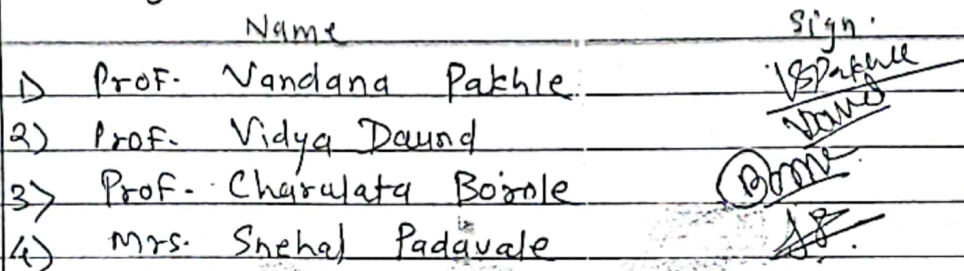 Name Sign.
1) Prof. Vandana Pakhle VSPakhle
2) Prof. Vidya Daund
3) Prof. Charulata Borole
4) Mrs. Snehal Padavale